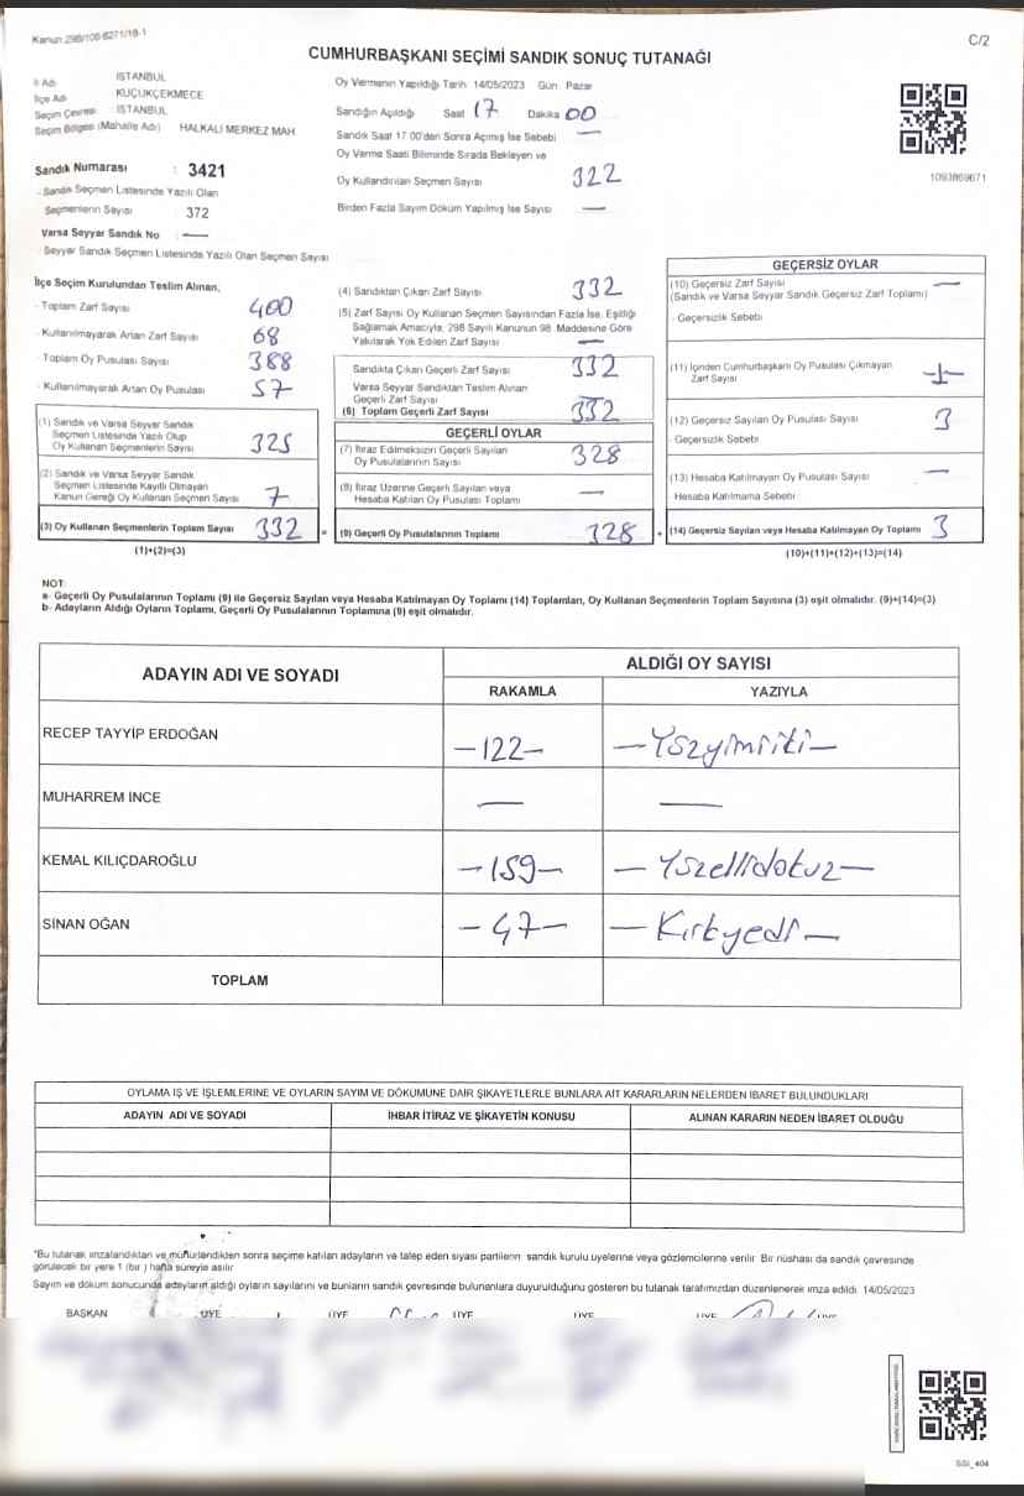 Kanun 298/106-6271/18-1
C/2
CUMHURBAŞKANI SEÇİMİ SANDIK SONUÇ TUTANAĞI
İl Adı : İSTANBUL
İlçe Adı : KÜÇÜKÇEKMECE
Seçim Çevresi : İSTANBUL
Seçim Bölgesi (Mahalle Adı) HALKALI MERKEZ MAH
Sandık Numarası : 3421
- Sandık Seçmen Listesinde Yazılı Olan
Seçmenlerin Sayısı 372
Varsa Seyyar Sandık No : —
- Seyyar Sandık Seçmen Listesinde Yazılı Olan Seçmen Sayısı
Oy Vermenin Yapıldığı Tarih 14/05/2023 Gün: Pazar
Sandığın Açıldığı Saat 17 Dakika 00
Sandık Saat 17.00'den Sonra Açılmış İse Sebebi —
Oy Verme Saati Bitiminde Sırada Bekleyen ve
Oy Kullandırılan Seçmen Sayısı 322
Birden Fazla Sayım Döküm Yapılmış İse Sayısı —
1093869671
İlçe Seçim Kurulundan Teslim Alınan,
- Toplam Zarf Sayısı 400
- Kullanılmayarak Artan Zarf Sayısı 68
Toplam Oy Pusulası Sayısı 388
- Kullanılmayarak Artan Oy Pusulası 57
(1) Sandık ve Varsa Seyyar Sandık
Seçmen Listesinde Yazılı Olup
Oy Kullanan Seçmenlerin Sayısı 325
(2) Sandık ve Varsa Seyyar Sandık
Seçmen Listesinde Kayıtlı Olmayan
Kanun Gereği Oy Kullanan Seçmen Sayısı 7
(3) Oy Kullanan Seçmenlerin Toplam Sayısı 332 =
(1)+(2)=(3)
(4) Sandıktan Çıkan Zarf Sayısı 332
(5) Zarf Sayısı Oy Kullanan Seçmen Sayısından Fazla İse, Eşitliği
Sağlamak Amacıyla, 298 Sayılı Kanunun 98. Maddesine Göre
Yakılarak Yok Edilen Zarf Sayısı —
Sandıkta Çıkan Geçerli Zarf Sayısı 332
Varsa Seyyar Sandıktan Teslim Alınan
Geçerli Zarf Sayısı
(6) Toplam Geçerli Zarf Sayısı 332
GEÇERLİ OYLAR
(7) İtiraz Edilmeksizin Geçerli Sayılan
Oy Pusulalarının Sayısı 328
(8) İtiraz Üzerine Geçerli Sayılan veya
Hesaba Katılan Oy Pusulası Toplamı —
(9) Geçerli Oy Pusulalarının Toplamı 328 +
GEÇERSİZ OYLAR
(10) Geçersiz Zarf Sayısı —
(Sandık ve Varsa Seyyar Sandık Geçersiz Zarf Toplamı)
- Geçersizlik Sebebi
(11) İçinden Cumhurbaşkanı Oy Pusulası Çıkmayan
Zarf Sayısı -1-
(12) Geçersiz Sayılan Oy Pusulası Sayısı 3
- Geçersizlik Sebebi
(13) Hesaba Katılmayan Oy Pusulası Sayısı —
Hesaba Katılmama Sebebi
(14) Geçersiz Sayılan veya Hesaba Katılmayan Oy Toplamı 3
(10)+(11)+(12)+(13)=(14)
NOT:
a- Geçerli Oy Pusulalarının Toplamı (9) ile Geçersiz Sayılan veya Hesaba Katılmayan Oy Toplamı (14) Toplamları, Oy Kullanan Seçmenlerin Toplam Sayısına (3) eşit olmalıdır. (9)+(14)=(3)
b- Adayların Aldığı Oyların Toplamı, Geçerli Oy Pusulalarının Toplamına (9) eşit olmalıdır.
ADAYIN ADI VE SOYADI
ALDIĞI OY SAYISI
RAKAMLA YAZIYLA
RECEP TAYYİP ERDOĞAN —122— —Yüzyirmiiki—
MUHARREM İNCE — —
KEMAL KILIÇDAROĞLU —159— —Yüzellidokuz—
SİNAN OĞAN —47— —Kırkyedi—
TOPLAM
OYLAMA İŞ VE İŞLEMLERİNE VE OYLARIN SAYIM VE DÖKÜMÜNE DAİR ŞİKAYETLERLE BUNLARA AİT KARARLARIN NELERDEN İBARET BULUNDUKLARI
ADAYIN ADI VE SOYADI İHBAR İTİRAZ VE ŞİKAYETİN KONUSU ALINAN KARARIN NEDEN İBARET OLDUĞU
*Bu tutanak imzalandıktan ve mühürlendikten sonra seçime katılan adayların ve talep eden siyasi partilerin sandık kurulu üyelerine veya gözlemcilerine verilir. Bir nüshası da sandık çevresinde
görülecek bir yere 1 (bir) hafta süreyle asılır
Sayım ve döküm sonucunda adayların aldığı oyların sayılarını ve bunların sandık çevresinde bulunanlara duyurulduğunu gösteren bu tutanak tarafımızdan düzenlenerek imza edildi. 14/05/2023
BAŞKAN ÜYE ÜYE ÜYE ÜYE ÜYE ÜYE